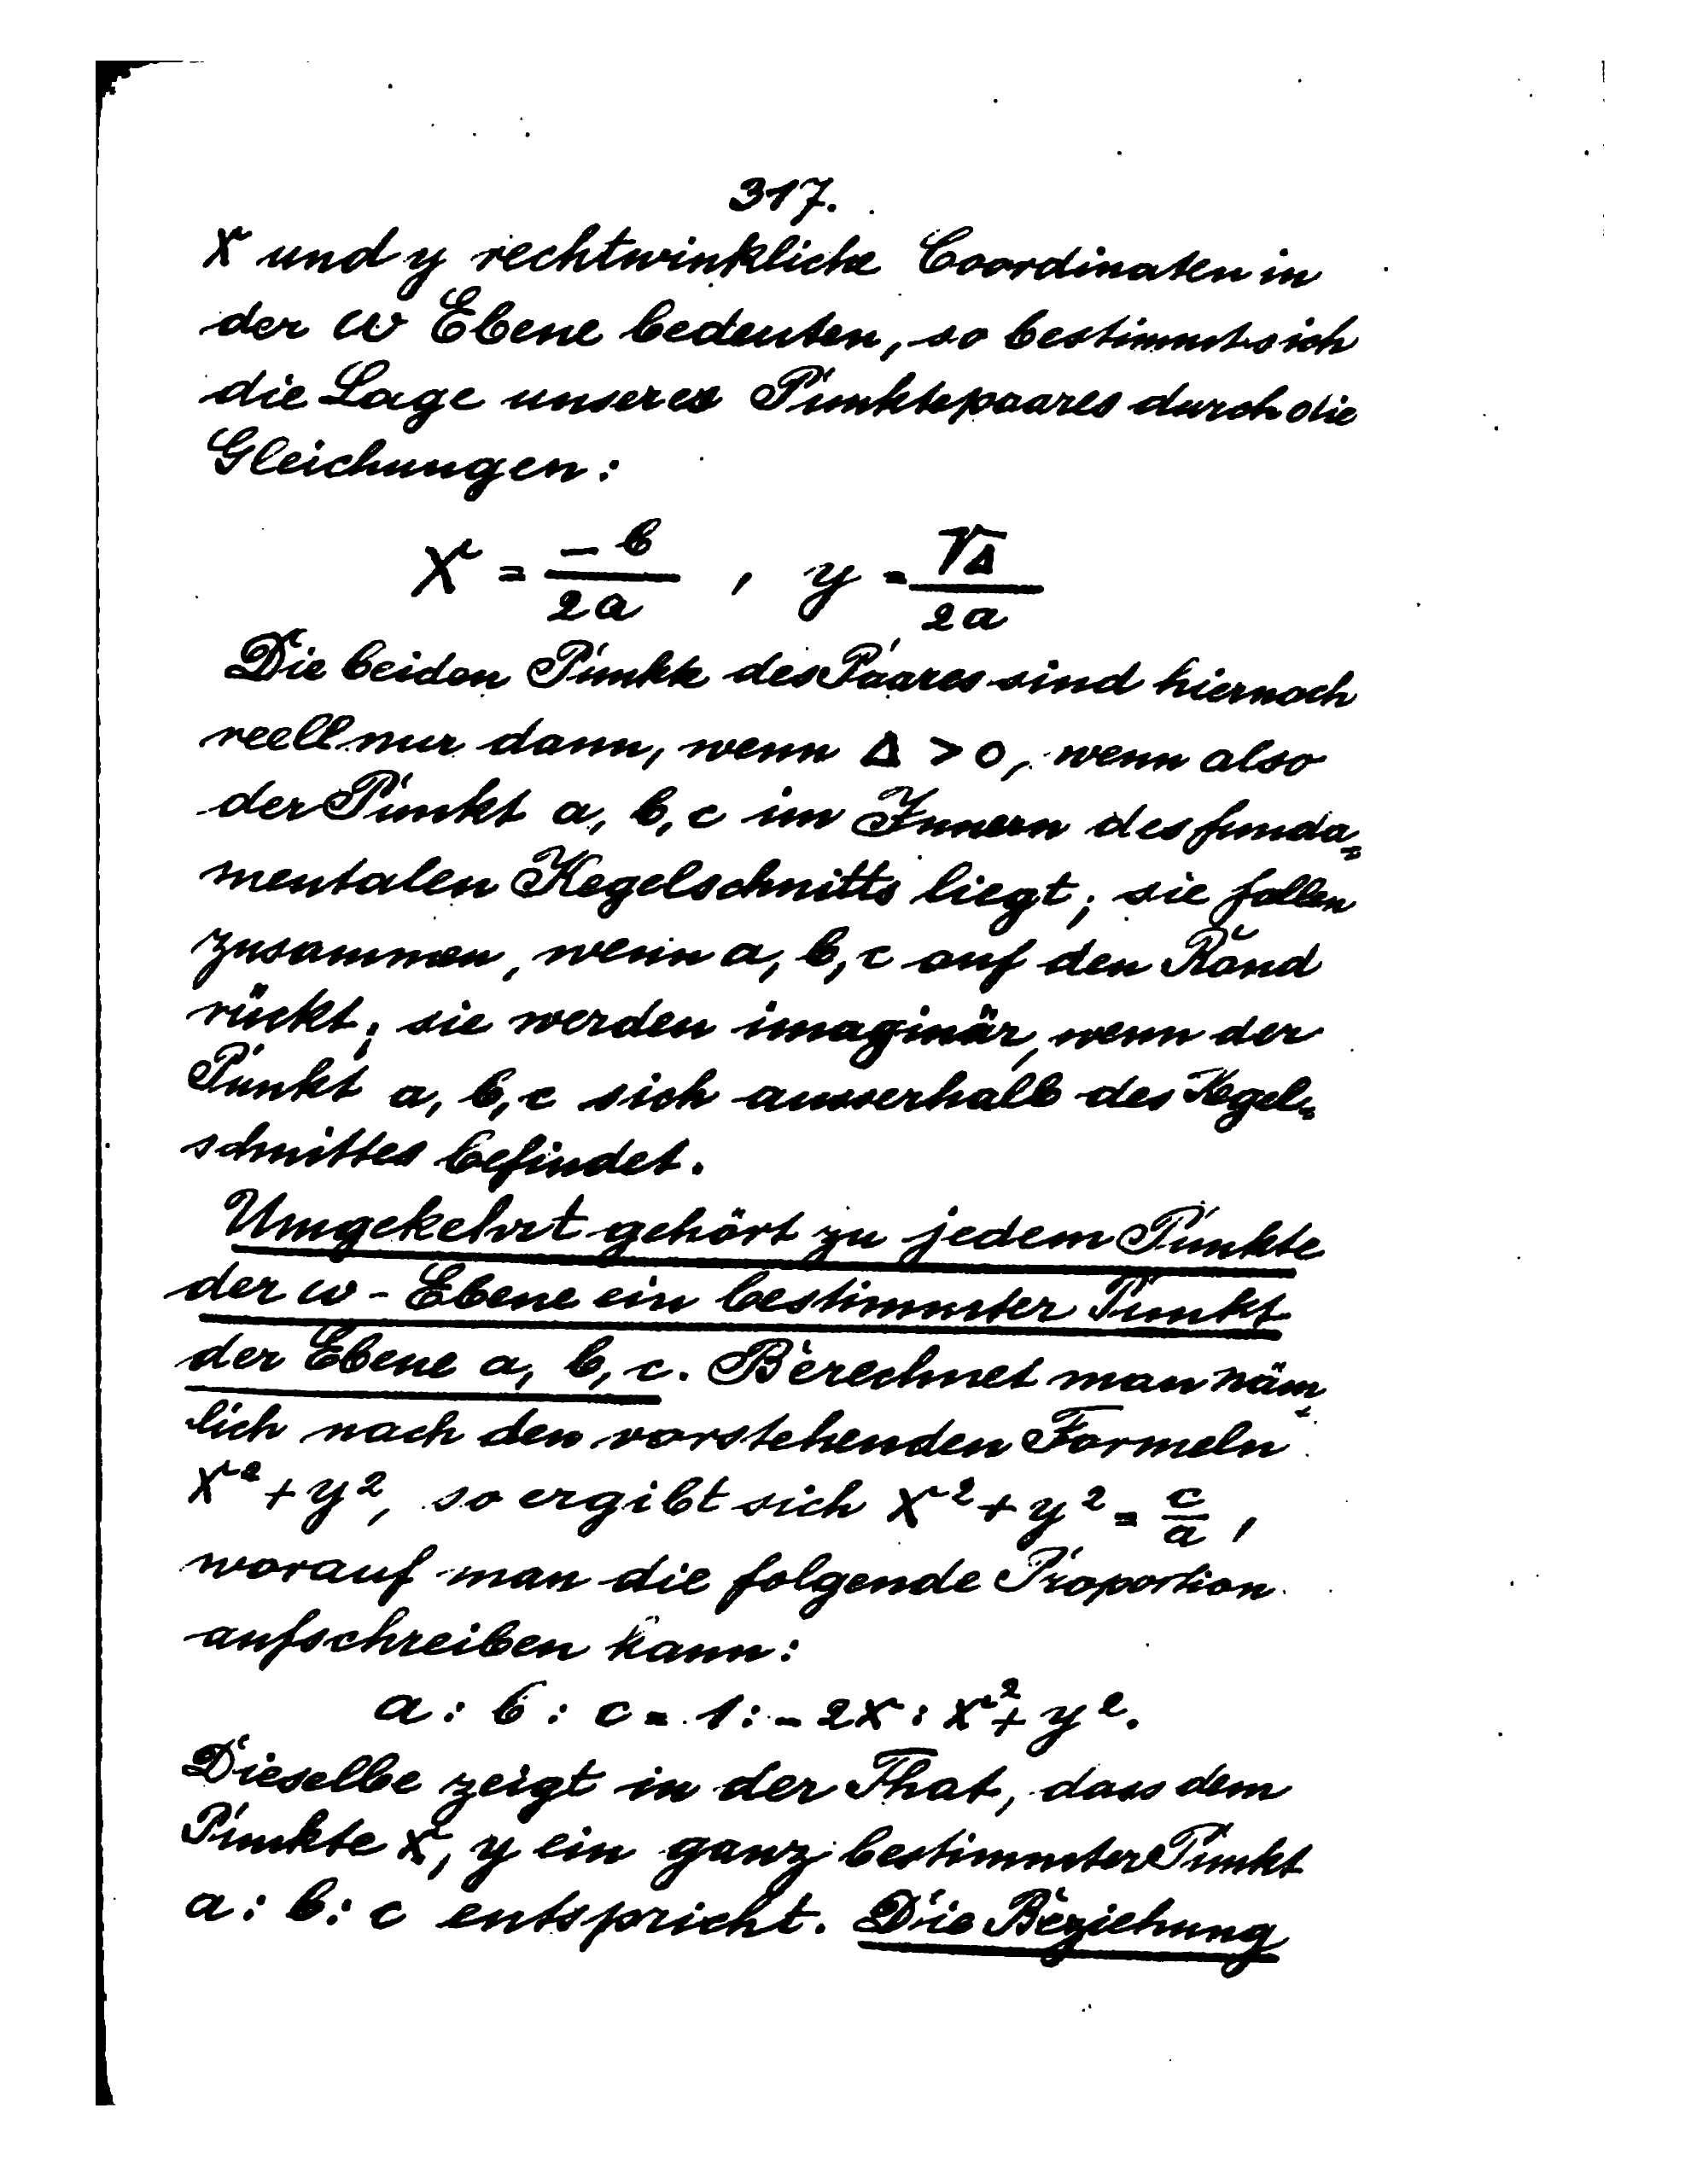 317.
x und y rechtwinkliche Coordinaten in
der ω Ebene bedeuten, so bestimmt sich
die Lage unseres Punktepaares durch die
Gleichungen:
x = -b/2a , y = √Δ/2a
Die beiden Punkte des Paares sind hiernach
reell nur dann, wenn Δ > 0, wenn also
der Punkt a, b, c im Innern des funda=
mentalen Kegelschnitts liegt; sie fallen
zusammen, wenn a, b, c auf den Rand
rückt; sie werden imaginär, wenn der
Punkt a, b, c sich ausserhalb des Kegel=
schnittes befindet.
Umgekehrt gehört zu jedem Punkte
der ω-Ebene ein bestimmter Punkt
der Ebene a, b, c. Berechnet man näm=
lich nach den vorstehenden Formeln
x² + y², so ergibt sich x² + y² = c/a,
worauf man die folgende Proportion
aufschreiben kann:
a : b : c = 1 : -2x : x² + y².
Dieselbe zeigt in der That, dass dem
Punkte x, y ein ganz bestimmter Punkt
a : b : c entspricht. Die Beziehung